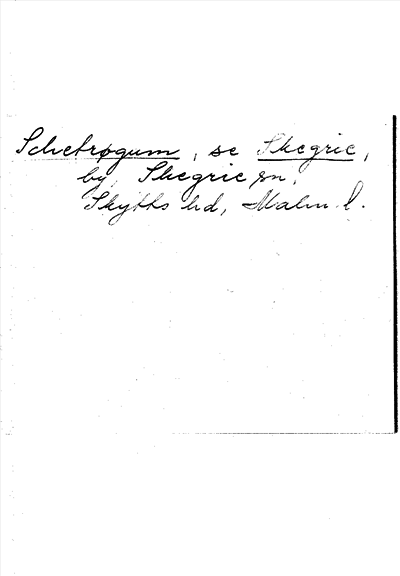 Schetrøgum, se Skegrie,
by, Skegrie sn,
Skytts hd, Malm. l.